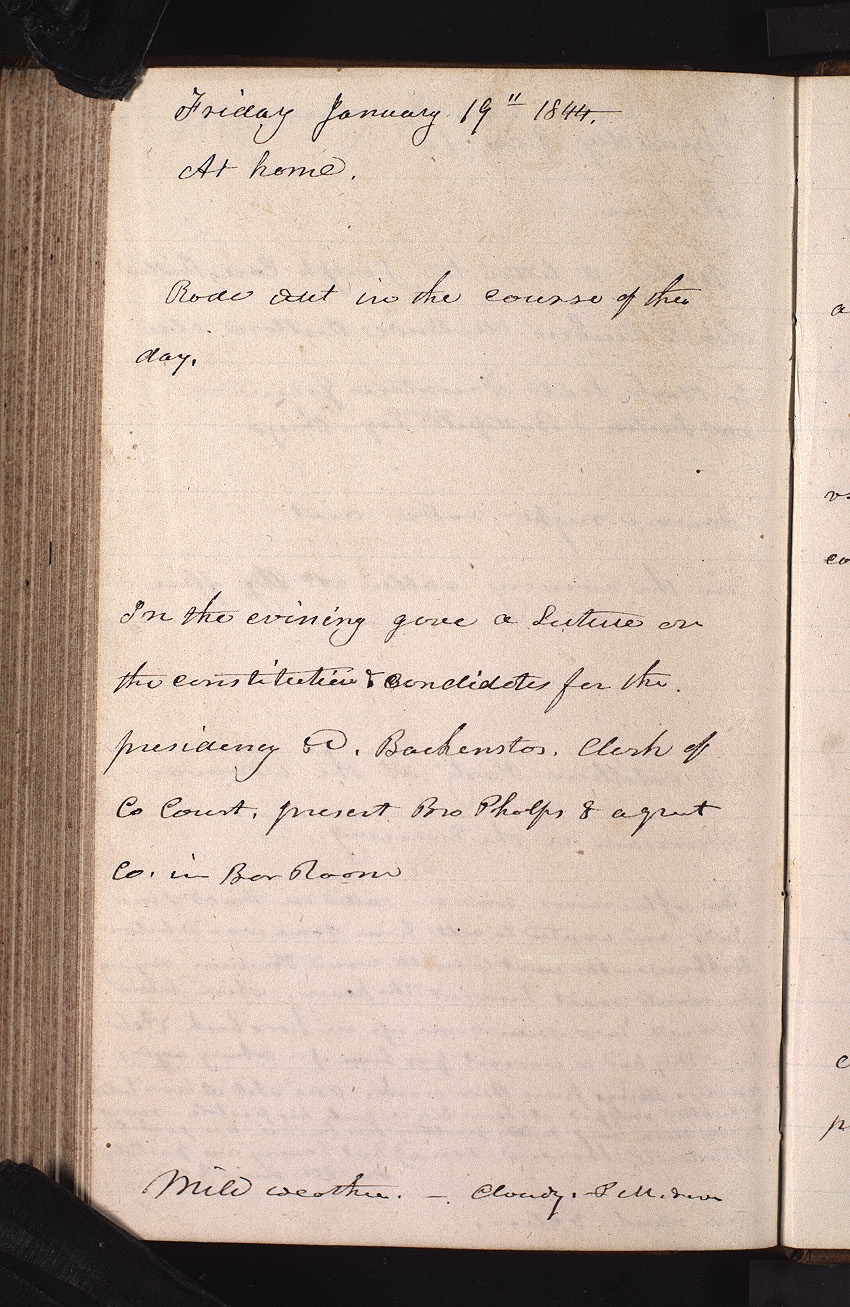 Friday January 19" 1844.
At home.
Rode out in the course of the
day.
In the evining gave a Lecture on
the constitution & candidates for the.
presidency &c. Backenstos. Clerk of
Co Court. present Bro Phelps & a great
Co. in Bar Room
Mild weather. — cloudy. P.M.